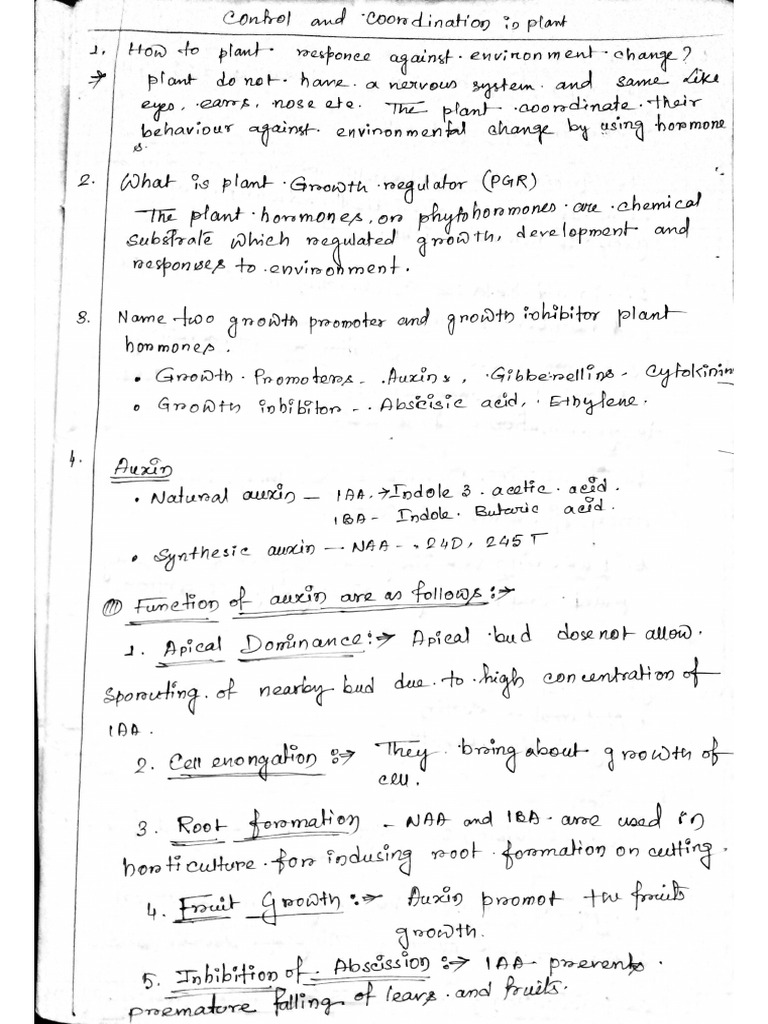 Control and Coordination in plant
1. How to plant responce against environment change?
→ plant do not have a nervous system and same like
eyes, earrs, nose etc. The plant coordinate their
behaviour against environmental change by using hormone
s.
2. What is plant Growth regulator (PGR)
The plant hormones, or phytohormones are chemical
substrate which regulated growth, development and
responses to environment.
3. Name two growth promoter and growth inhibitor plant
hormones.
• Growth Promoters - Auxins, Gibberellins - Cytokinin
• Growth inhibitor - Abscisic acid, Ethylene.
4. Auxin
• Natural auxin - IAA → Indole 3 acetic acid.
IBA - Indole Butaric acid.
• Synthesic auxin - NAA -, 24D, 245T
(III) Function of auxin are as follows :→
1. Apical Dominance :→ Apical bud dose not allow.
Sporouting of nearby bud due to high concentration of
IAA.
2. Cell enongation :→ They bring about growth of
cell.
3. Root formation - NAA and IBA are used in
horticulture for indusing root formation on cutting.
4. Fruit Growth :→ Auxin promot the fruits
growth.
5. Inhibition of Abscission :→ IAA prevents
premature falling of lears and fruits.